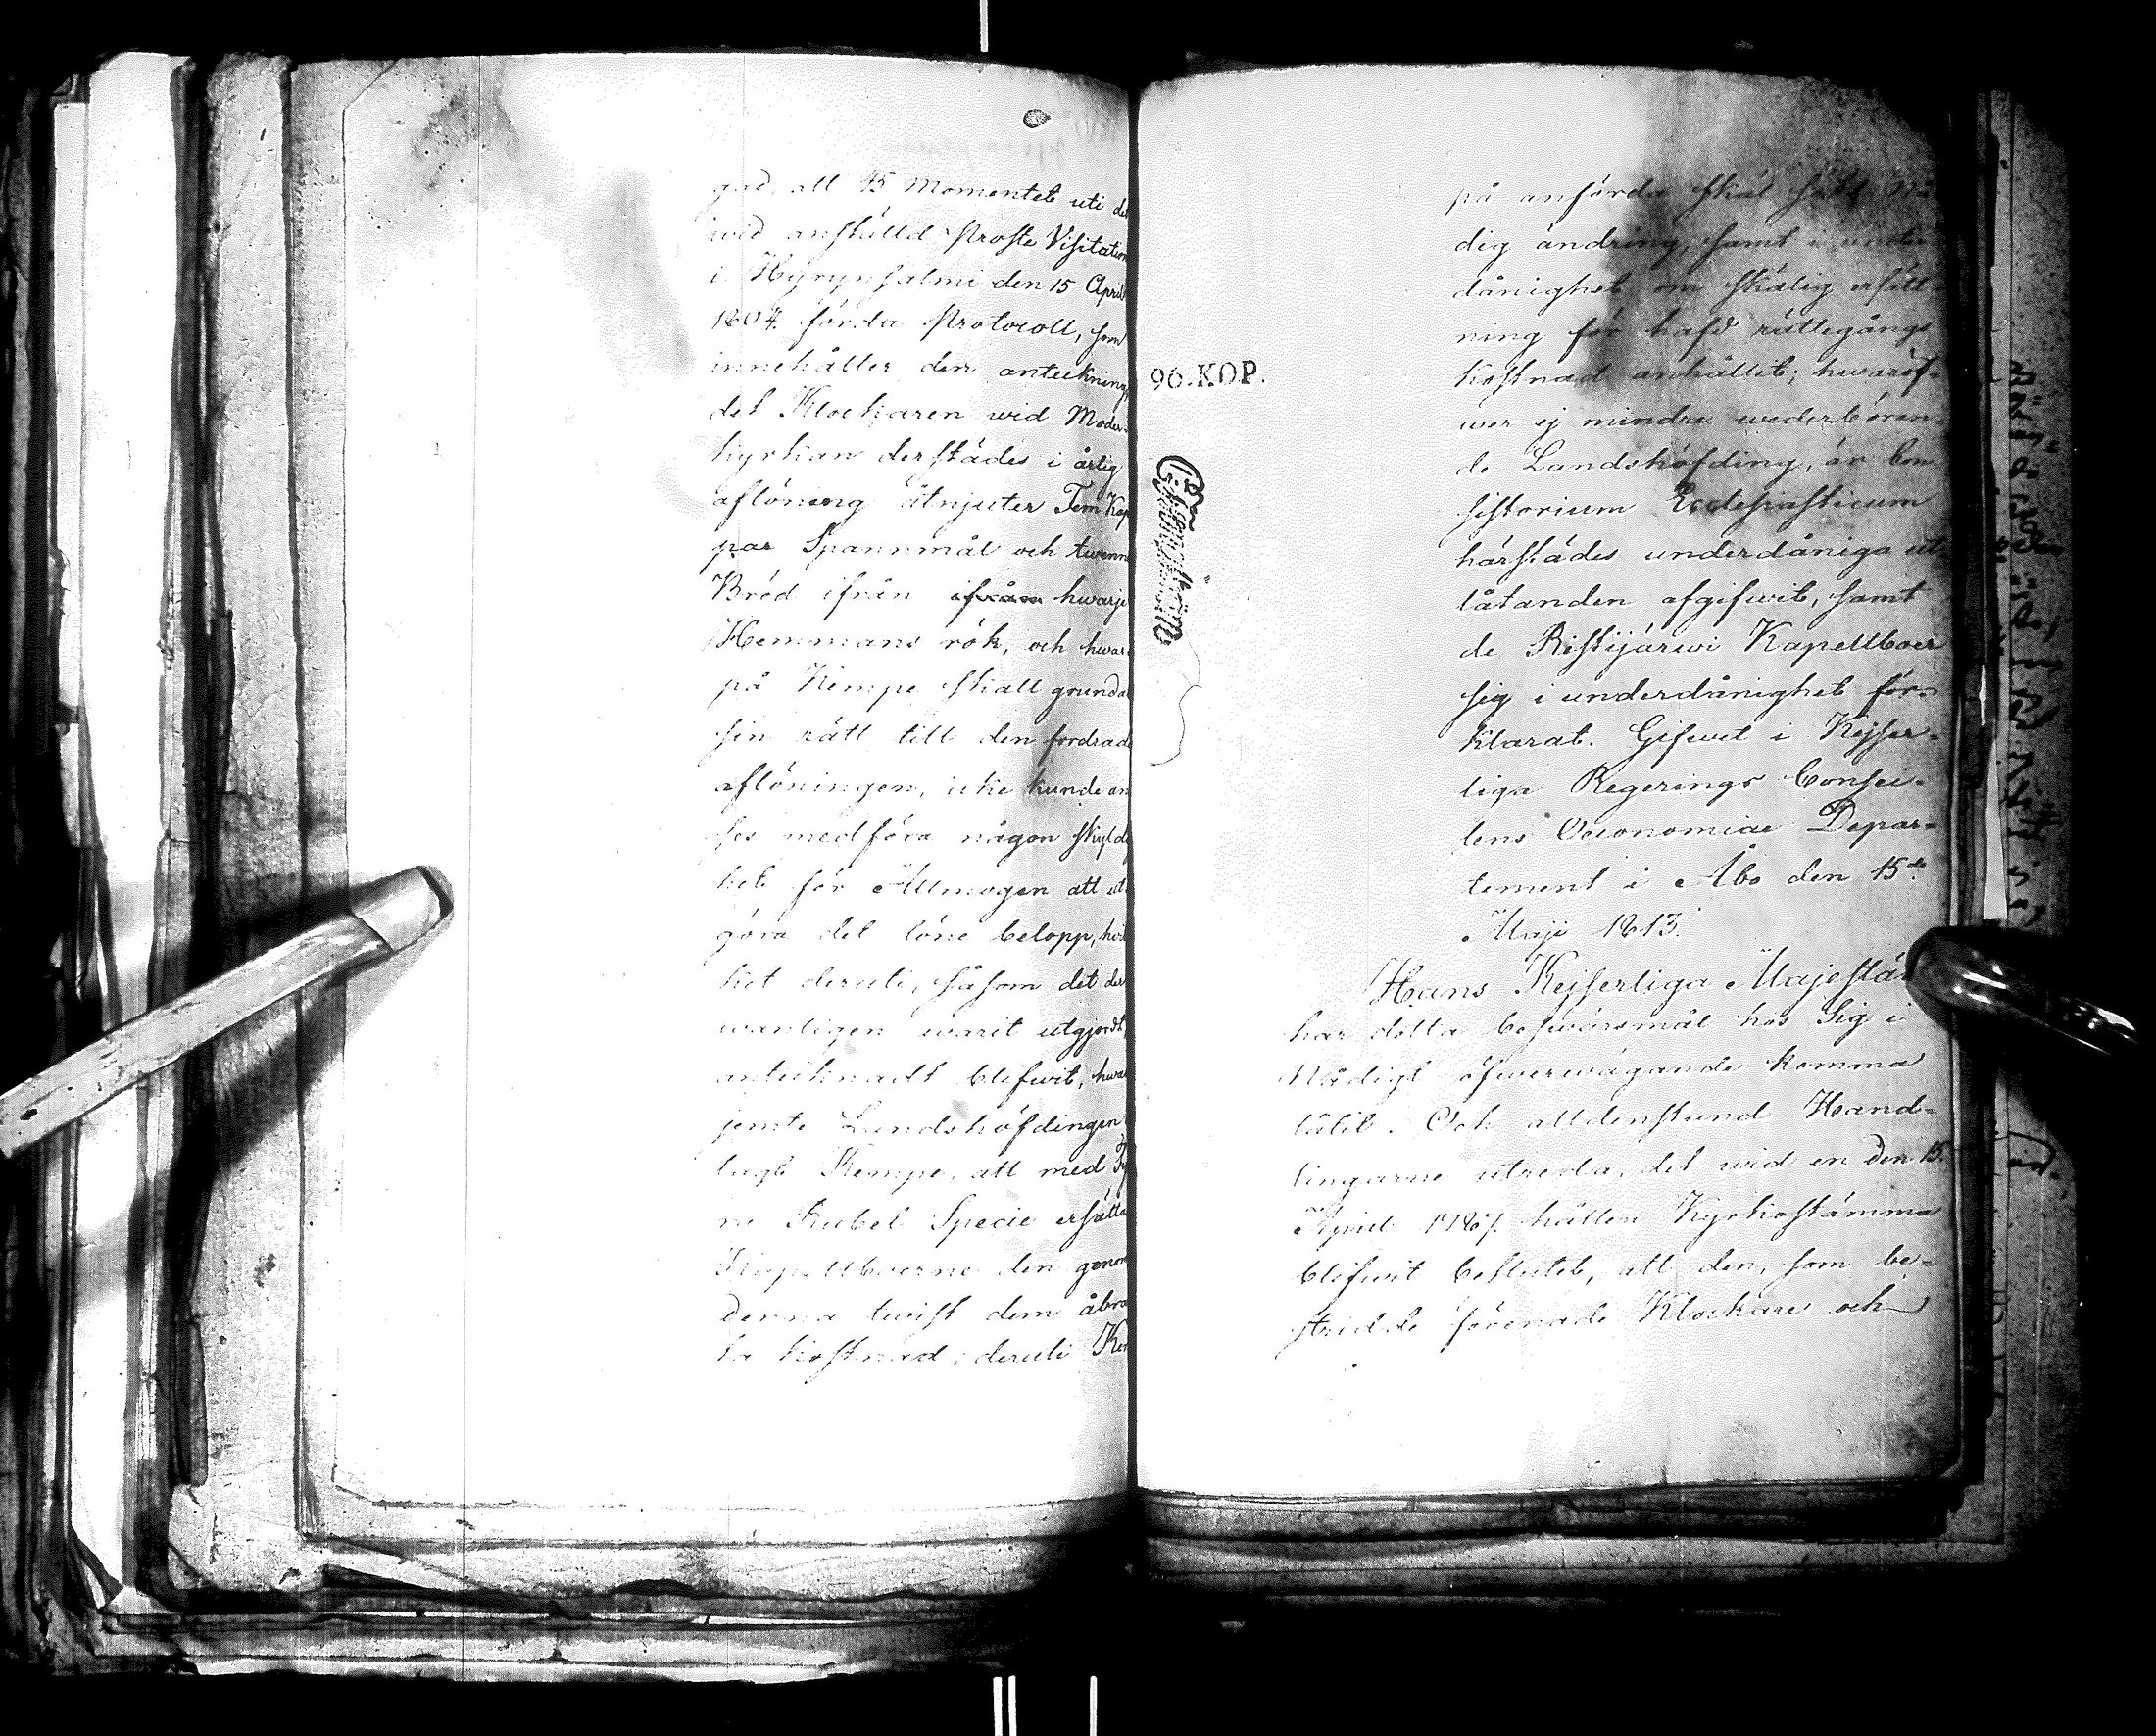 gad, att 15 Momentet uti det
wid anställd Proste Visitation
i Hyrynsalmi den 15 April
1804 förda Protocoll, som
innehåller den anteckning,
det Klockaren wid Moder-
kyrkan derstädes i årlig
aflöning åtnjuter Fem Kap
par Spannmål och twenne
Bröd ifrån ifrån hwarje
Hemmans rök, och hwar
på Kempe skall grunda
sin rätt till den fordrade
aflöningen, icke kunde an
ses medföra någon skyldig
het för Allmogen att ut
göra det löne belopp, hwil
ket deruti, såsom det der
wanligen warit utgjordt,
antecknadt blifwit, hwar
jemte Landshöfdingen
lagt Kempe, att med
Rubel Specie ersätta
Kapellboerne den genom
denna twist dem åbra
ta kostnad; deruti Kem
96.KOP.
på anförda skäl
dig ändring, samt i under
dånighet om skälig ersätt-
ning för hafd rättegångs
kostnad anhållit; hwaröf-
wer ej mindre wederbören-
de Landshöfding, än Con-
sistorium Ecclesiasticum
härstädes underdåniga ut
låtanden afgifwit, samt
de Ristijärwi Kapellboer
sig i underdånighet för-
klarat. Gifwet i Kejser-
liga Regerings Consei-
lens Oeconomiae Depar-
tement i Åbo den 15de
Maji 1813.
Hans Kejserliga Majestät
har detta beswärsmål hos Sig i
Nådigt öfwerwägande komma
låtit. Och alldenstund Hand-
lingarne utreda, det wid en den 15.
April 1787 hållen Kyrkostämma
blifwit beslutit, att den, som be-
stridde förenade Klockare och